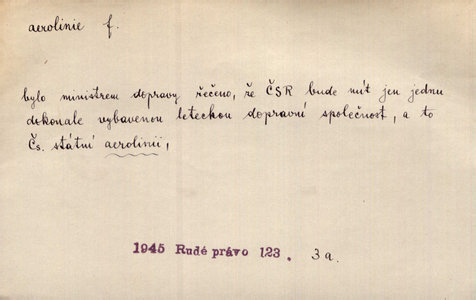 aerolinie f.
bylo ministrem dopravy řečeno, že ČSR bude mít jen jednu
dokonale vybavenou leteckou dopravní společnost, a to
Čs. státní aerolinii,
1945 Rudé právo 123. 3a.